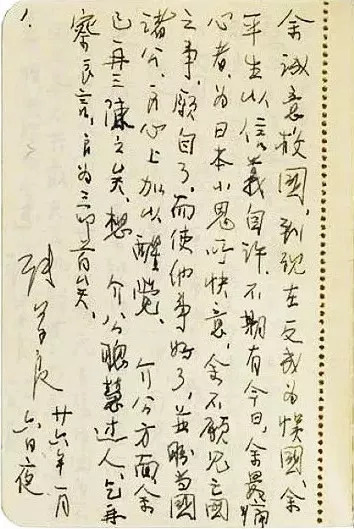 余誠意救國，到現在反成為悞國，余
平生以信義自許，不期有今日，余最痛
心者，為日本小鬼所快意，余不願見亡國
之事，願自了，而使他事好了，並盼當國
諸公，良心上加以醒覺，介公方面，余
已再三陳之矣，想 介公聰慧过人，乞再
察良言，良為三叩首矣。
張學良
廿六年一月
六日夜